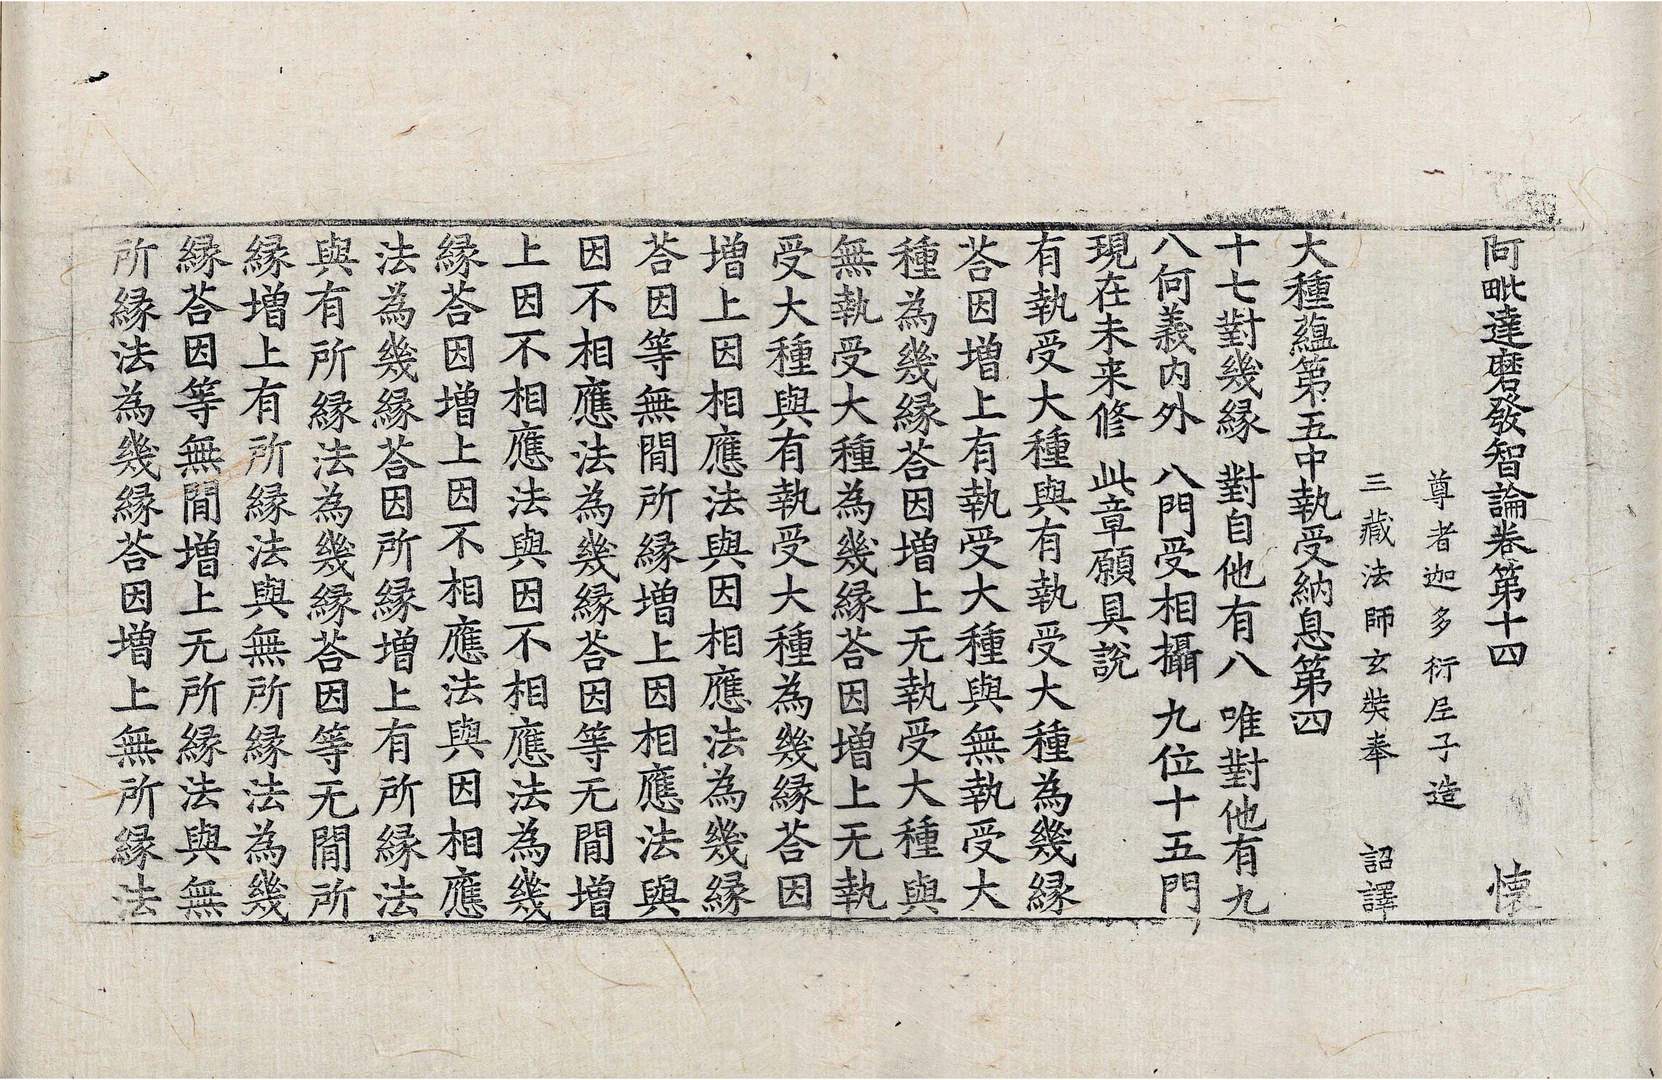 阿毗達磨發智論卷第十四 懐
尊者迦多衍尼子造
三藏法師玄奘奉 詔譯
大種蘊第五中執受納息第四
十七對幾縁 對自他有八 唯對他有九
八何義内外 八門受相攝 九位十五門
現在未来修 此章願具說
有執受大種與有執受大種為幾縁
荅因増上有執受大種與無執受大
種為幾縁荅因増上无執受大種與
無執受大種為幾縁荅因増上无執
受大種與有執受大種為幾縁荅因
増上因相應法與因相應法為幾縁
荅因等無間所縁増上因相應法與
因不相應法為幾縁荅因等无間増
上因不相應法與因不相應法為幾
縁荅因増上因不相應法與因相應
法為幾縁荅因所縁増上有所縁法
與有所縁法為幾縁荅因等无間所
縁増上有所縁法與無所縁法為幾
縁荅因等無間増上无所縁法與無
所縁法為幾縁荅因増上無所縁法